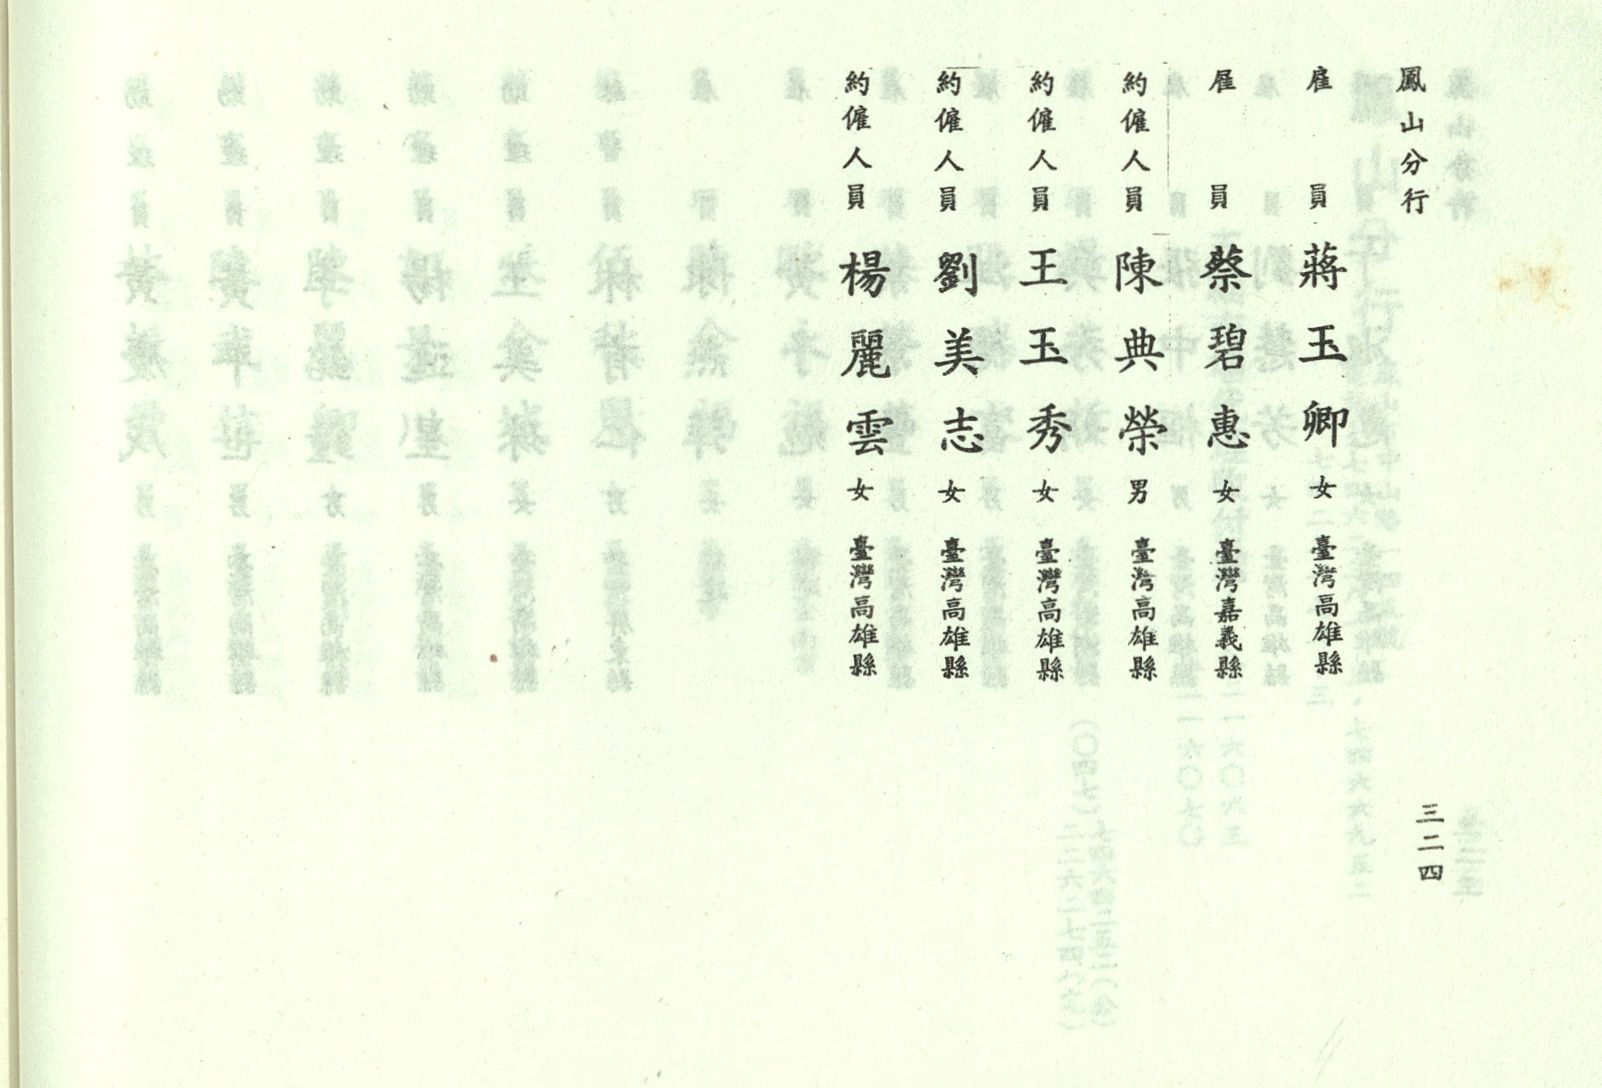 鳳山分行
雇員 蔣玉卿 女 臺灣高雄縣
雇員 蔡碧惠 女 臺灣嘉義縣
約僱人員 陳典榮 男 臺灣高雄縣
約僱人員 王玉秀 女 臺灣高雄縣
約僱人員 劉美志 女 臺灣高雄縣
約僱人員 楊麗雲 女 臺灣高雄縣
三二四